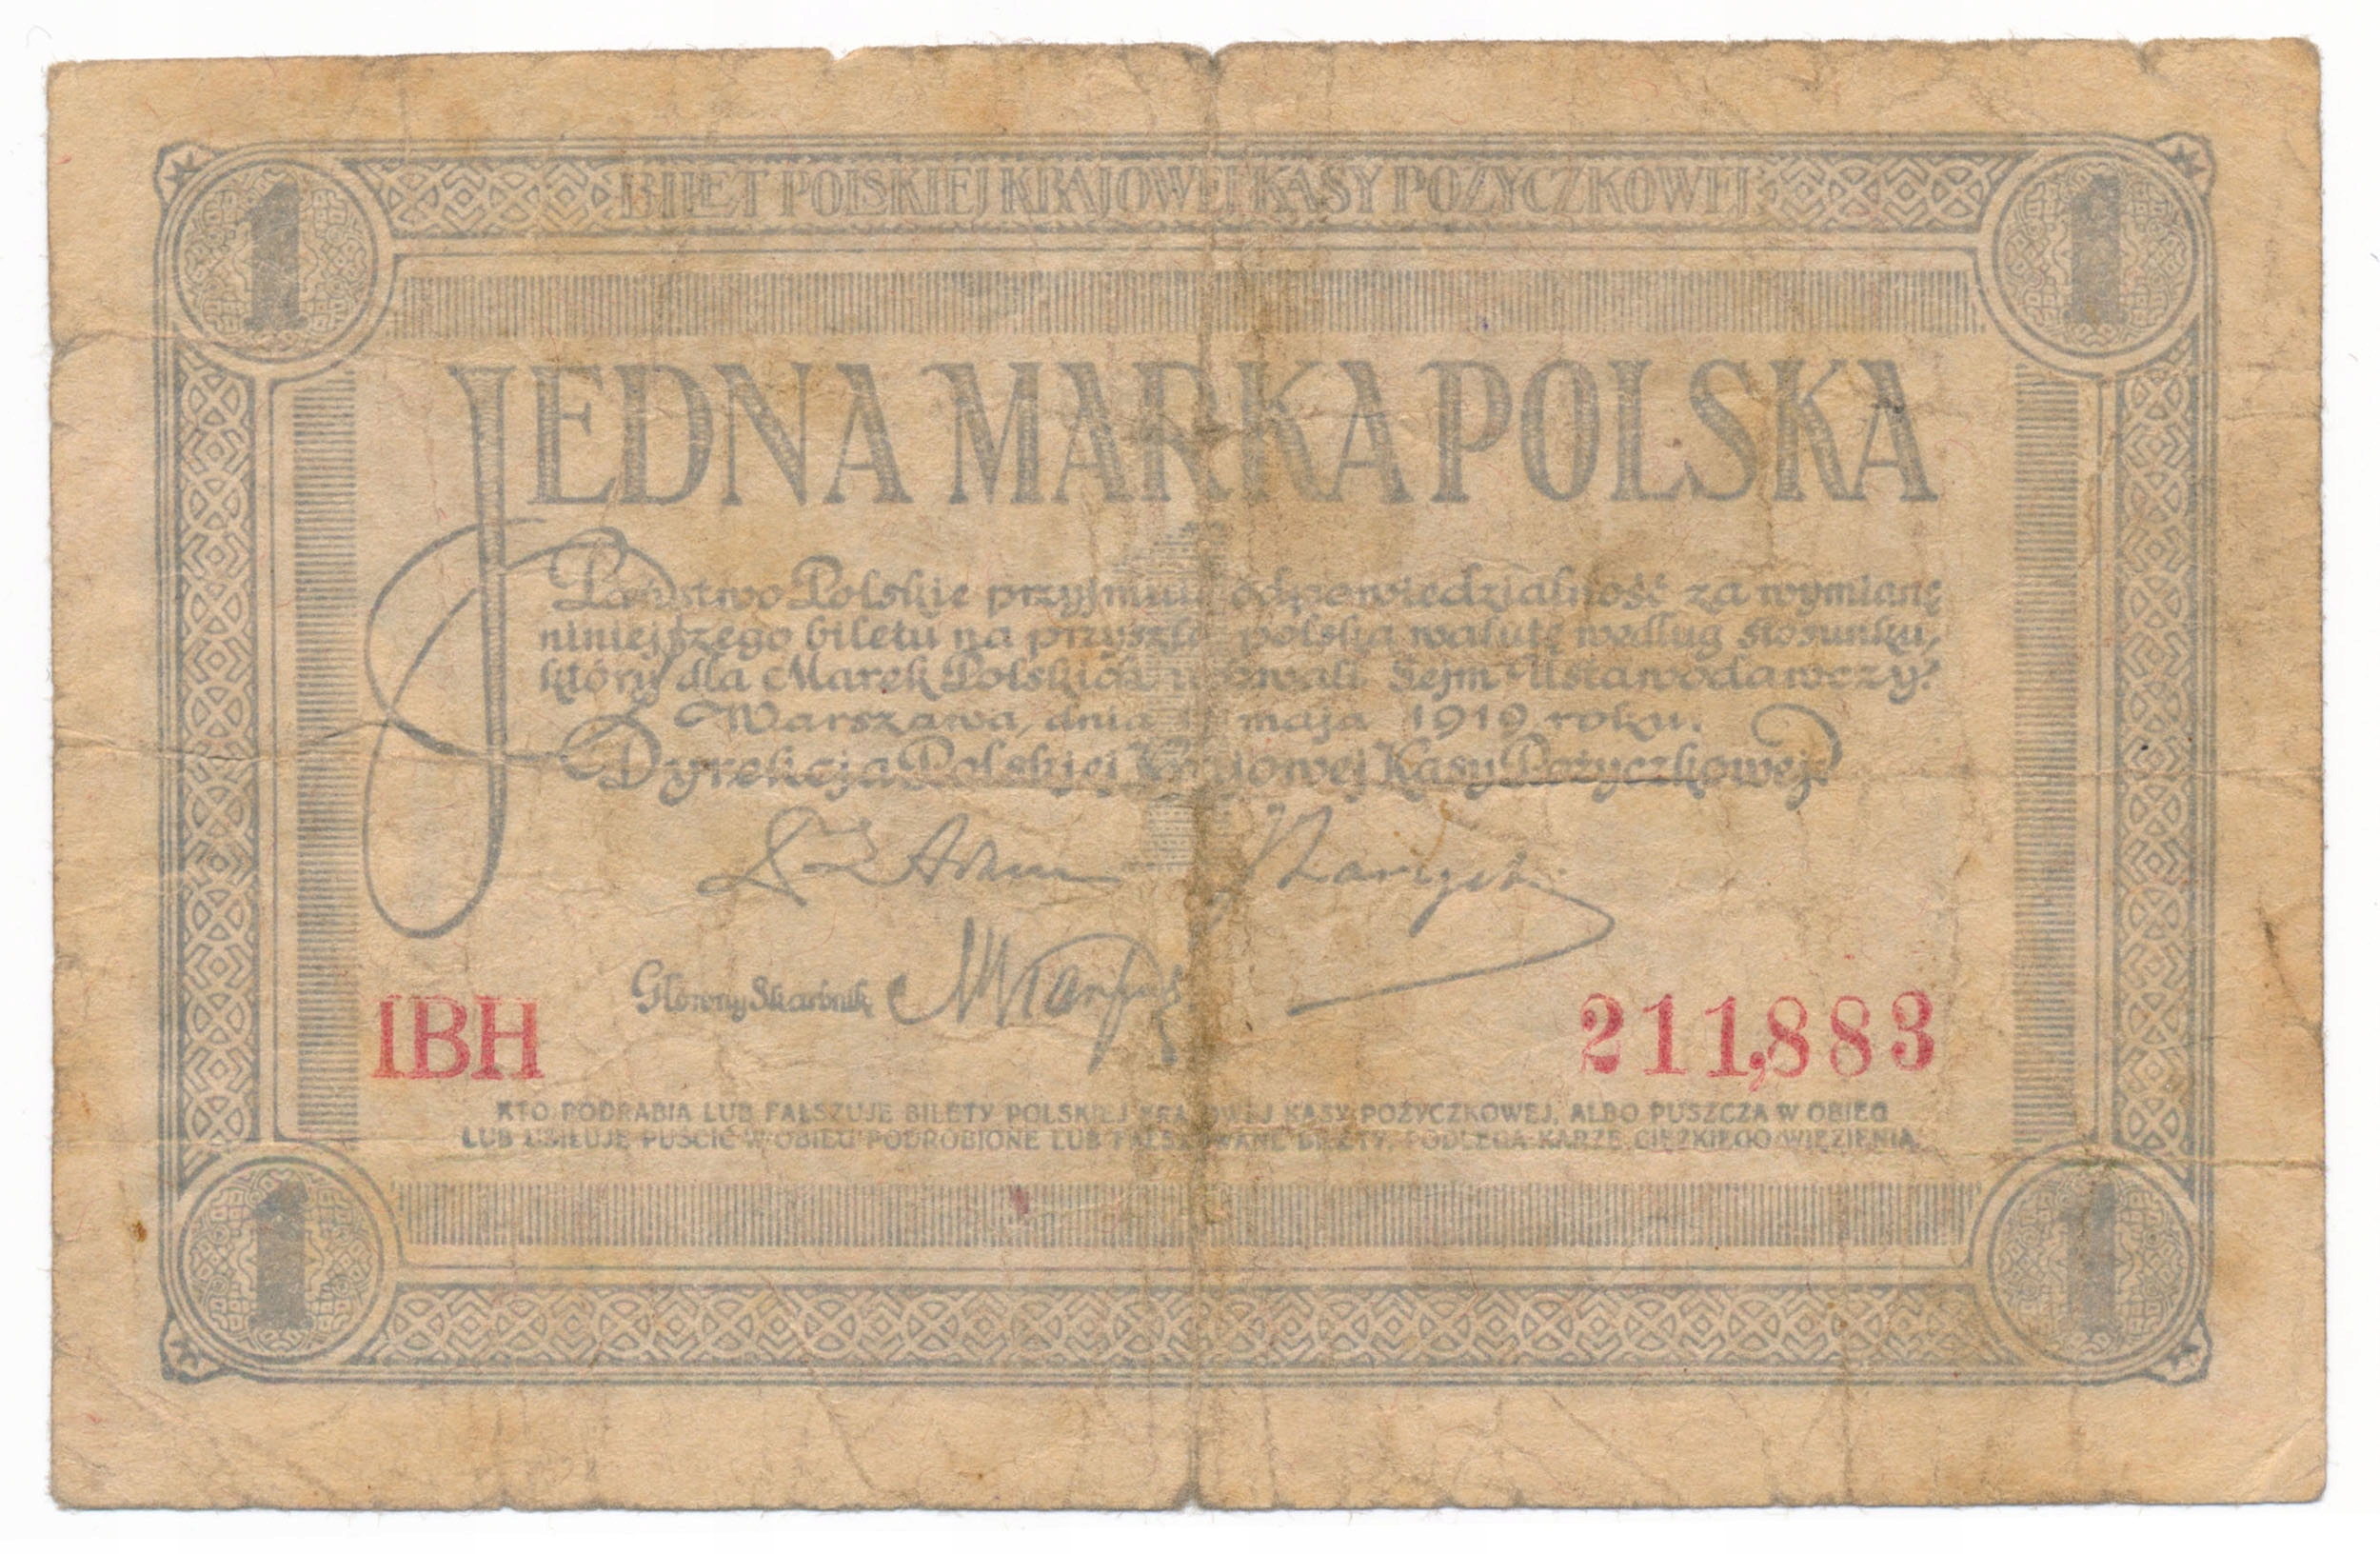 1 BILET POLSKIEJ KRAJOWEJ KASY POŻYCZKOWEJ 1
JEDNA MARKA POLSKA
Państwo Polskie przyjmuje odpowiedzialność za wymianę
niniejszego biletu na przyszłą polską walutę według stosunku,
który dla Marek Polskich uchwali Sejm Ustawodawczy.
Warszawa, dnia maja 1919 roku.
Dyrekcja Polskiej Krajowej Kasy Pożyczkowej.
Główny Skarbnik
IBH 211,883
KTO PODRABIA LUB FAŁSZUJE BILETY POLSKIEJ KRAJOWEJ KASY POŻYCZKOWEJ, ALBO PUSZCZA W OBIEG
LUB USIŁUJE PUŚCIĆ W OBIEG PODROBIONE LUB FAŁSZOWANE BILETY, PODLEGA KARZE CIĘŻKIEGO WIĘZIENIA.
1 1